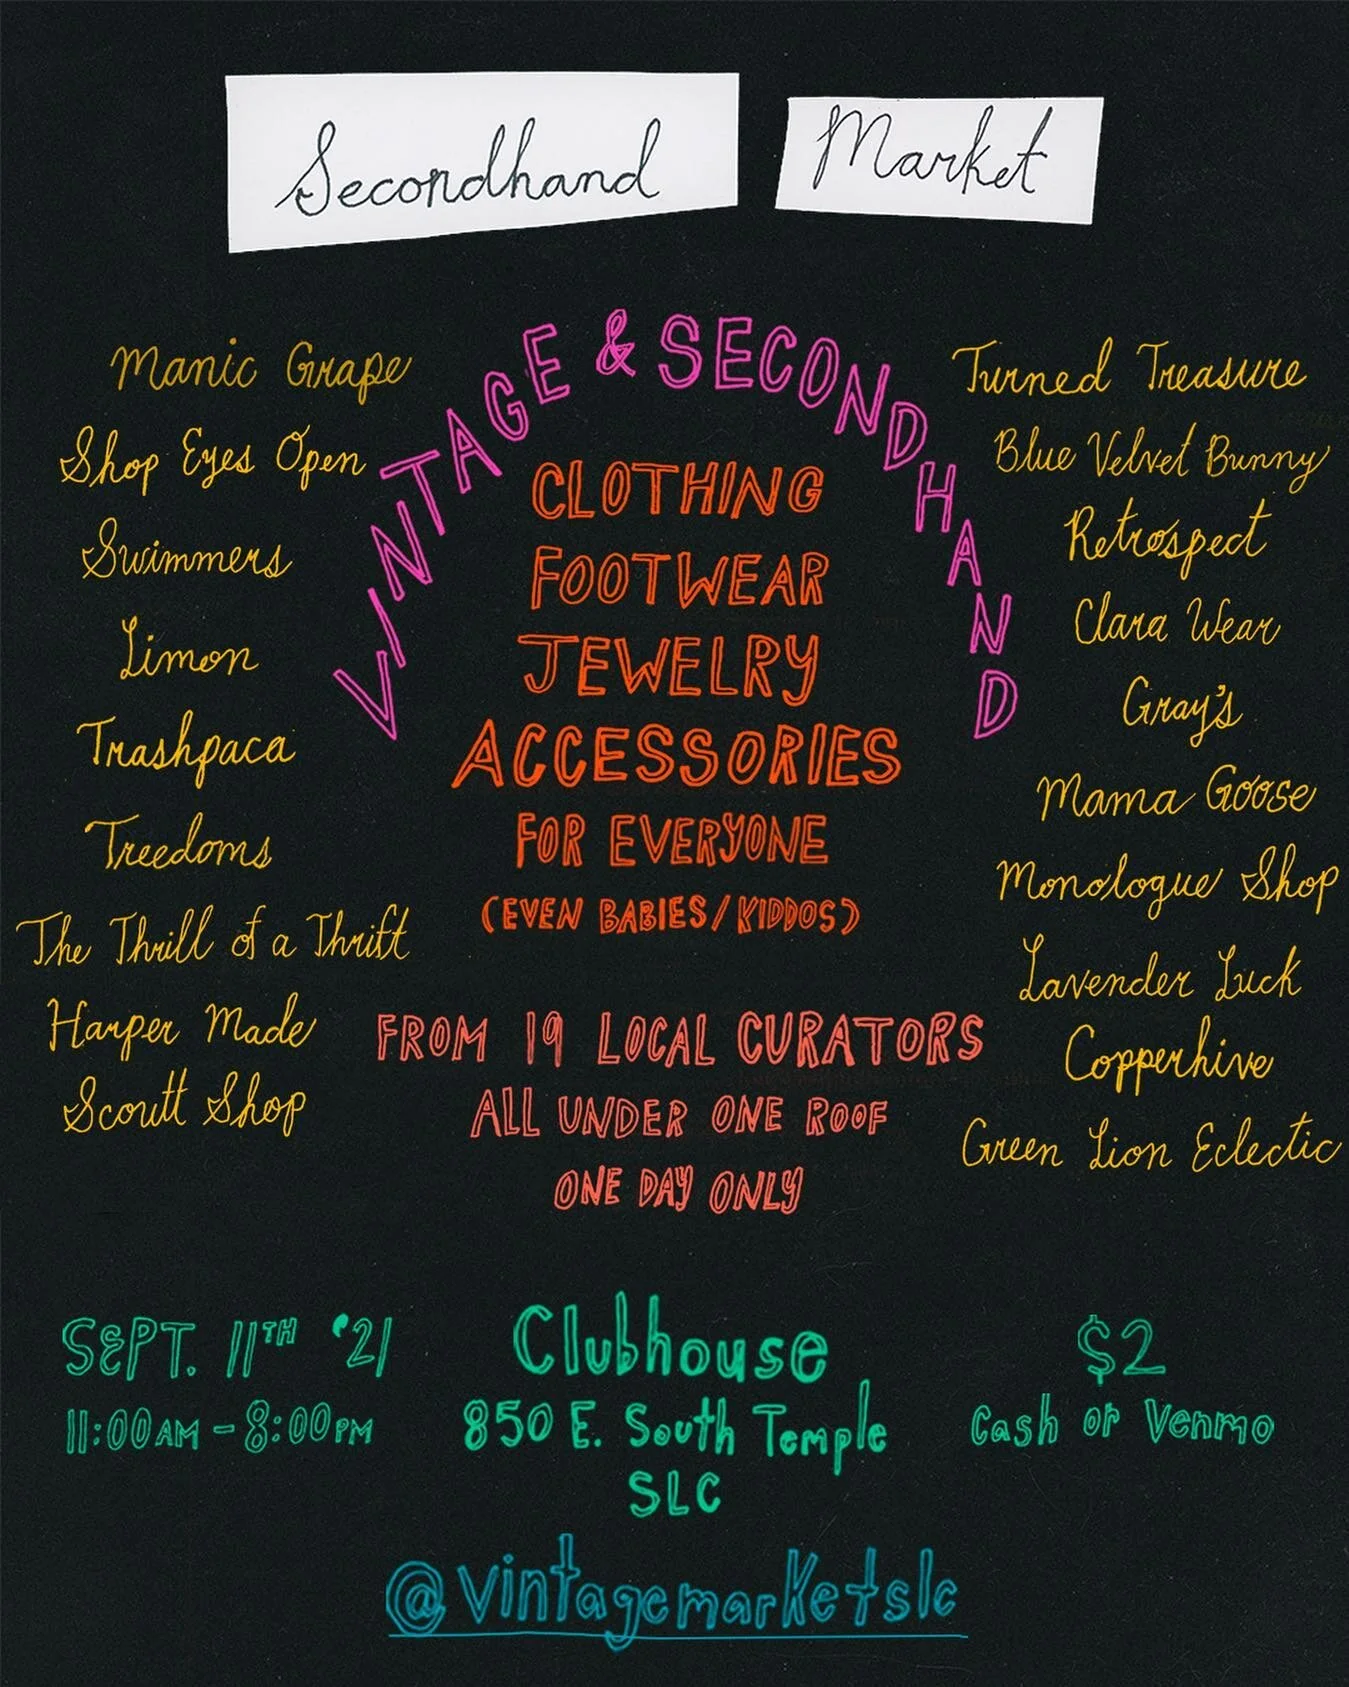 Secondhand Market
VINTAGE & SECONDHAND
Manic Grape
Shop Eyes Open
Swimmers
Limon
Trashpaca
Treedoms
The Thrill of a Thrift
Harper Made
Scoutt Shop
CLOTHING
FOOTWEAR
JEWELRY
ACCESSORIES
FOR EVERYONE
(EVEN BABIES/KIDDOS)
FROM 19 LOCAL CURATORS
ALL UNDER ONE ROOF
ONE DAY ONLY
Turned Treasure
Blue Velvet Bunny
Retrospect
Clara Wear
Gray's
Mama Goose
Monologue Shop
Lavender Luck
Copperhive
Green Lion Eclectic
SEPT. 11TH '21
11:00AM - 8:00PM
Clubhouse
850 E. South Temple
SLC
$2
Cash or Venmo
@vintagemarketslc